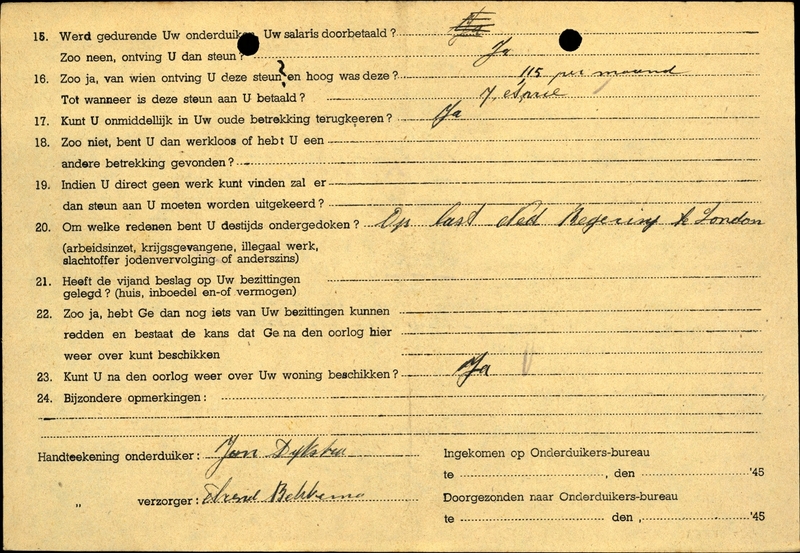 15. Werd gedurende Uw onderduiken Uw salaris doorbetaald ? Ja
Zoo neen, ontving U dan steun ? Ja
16. Zoo ja, van wien ontving U deze steun ? en hoog was deze ? 115 per maand
Tot wanneer is deze steun aan U betaald ? 7
17. Kunt U onmiddellijk in Uw oude betrekking terugkeeren ? Ja
18. Zoo niet, bent U dan werkloos of hebt U een
andere betrekking gevonden ?
19. Indien U direct geen werk kunt vinden zal er
dan steun aan U moeten worden uitgekeerd ?
20. Om welke redenen bent U destijds ondergedoken ? Op last Ned Regering te London
(arbeidsinzet, krijgsgevangene, illegaal werk,
slachtoffer jodenvervolging of anderszins)
21. Heeft de vijand beslag op Uw bezittingen
gelegd ? (huis, inboedel en-of vermogen)
22. Zoo ja, hebt Ge dan nog iets van Uw bezittingen kunnen
redden en bestaat de kans dat Ge na den oorlog hier
weer over kunt beschikken
23. Kunt U na den oorlog weer over Uw woning beschikken ? Ja
24. Bijzondere opmerkingen :
Handteekening onderduiker : Jan Dykstra
Ingekomen op Onderduikers-bureau
te , den '45
„ verzorger : Bekkema
Doorgezonden naar Onderduikers-bureau
te den , '45